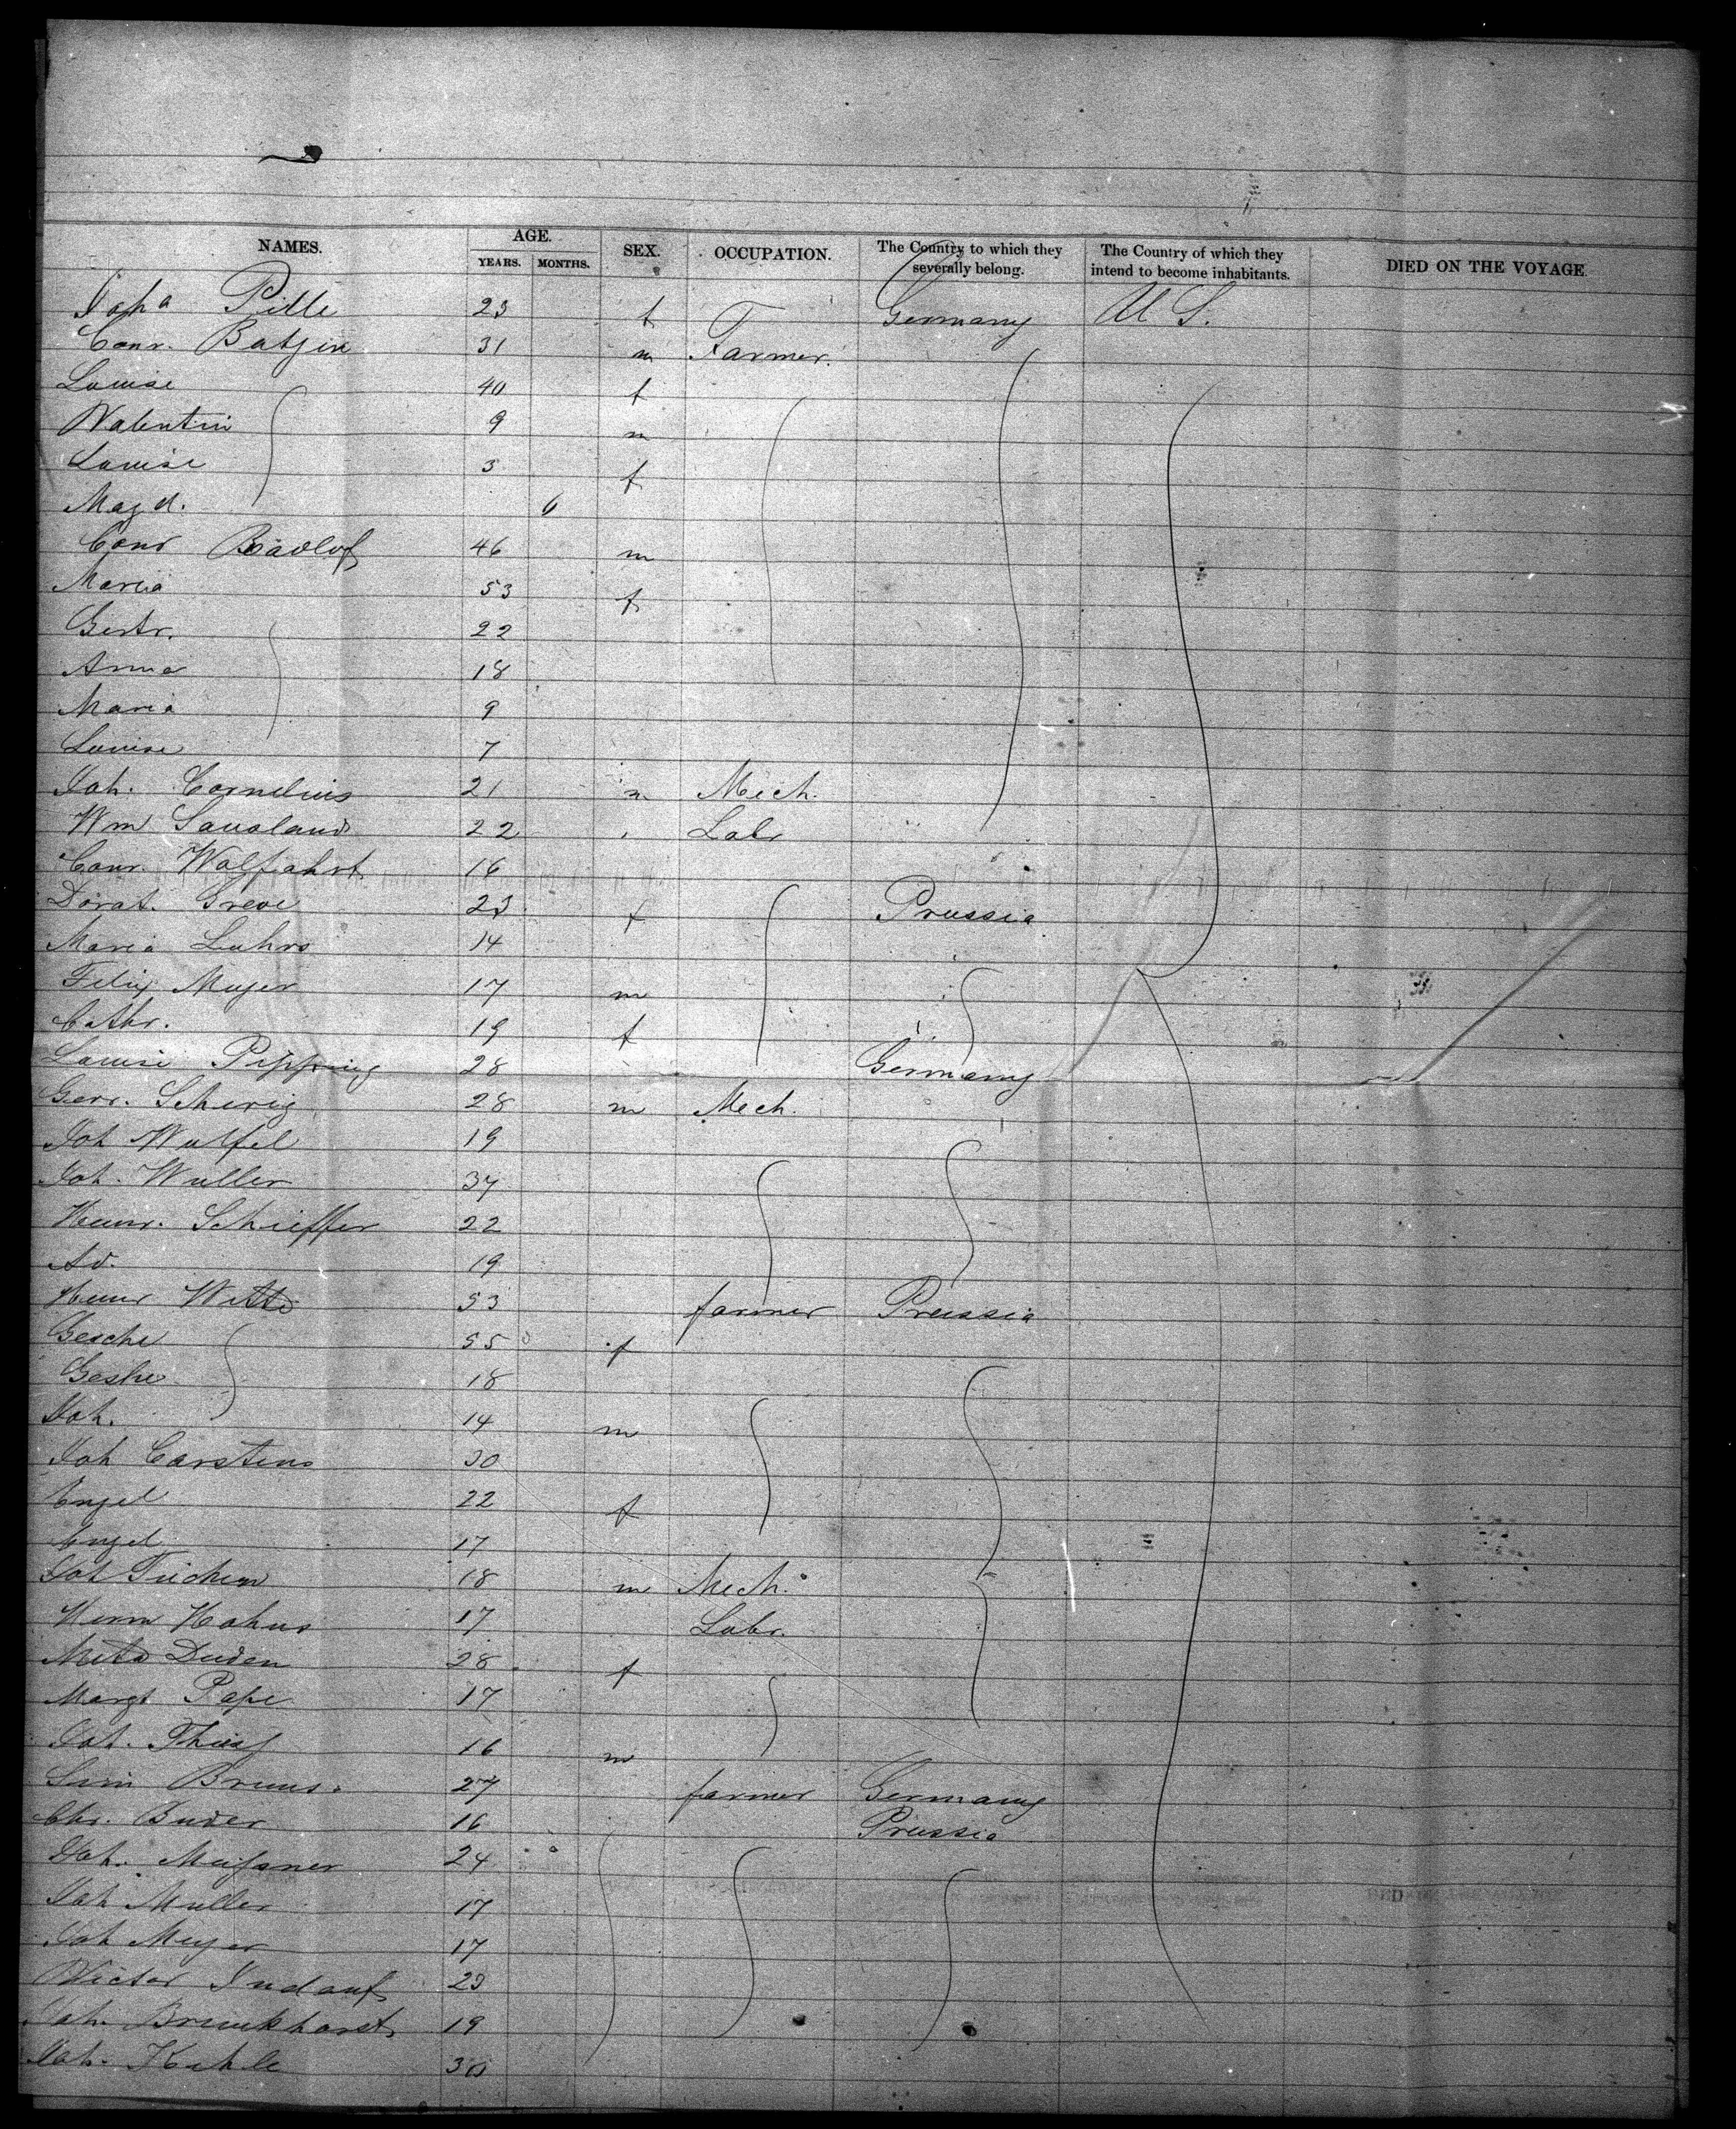 NAMES. AGE. YEARS. MONTHS. SEX. OCCUPATION. The Country to which they severally belong. The Country of which they intend to become inhabitants. DIED ON THE VOYAGE.
Joha Pille 23 f Germany U S.
Conr. Batzin 31 m Farmer.
Louise 40 f
Valentin 9 m
Louise 3 f
Magd. 6
Conr Radlof 46 m
Maria 53 f
Gertr. 22
Anna 18
Maria 9
Louise 7
Joh. Cornelius 21 m Mech.
Wm Sausland 22 Labr
Conr. Wolfahrt 16
Dorat. Greve 23 f Prussia
Maria Luhrs 14
Felix Meyer 17 m
Cathr. 19 f
Louise Pipping 28 Germany
Gerr. Schurig 28 m Mech.
Joh Wulfel 19
Joh. Wuller 37
Heinr. Schieffer 22
Ad. 19
Heinr Witte 53 farmer Prussia
Gesche 55 f
Geshe 18
Joh. 14 m
Joh Carstens 30
Engel 22 f
Engel 17
Joh Tuchen 18 m Mech.
Herm Hahns 17 Labr.
Meta Duden 28 f
Margt Pape 17
Joh. Thies 16 m
Bruns. 27 farmer Germany
Chr. Buder 16 Prussia
Joh. Meissner 24
Joh Muller 17
Joh Meyer 17
Victor Indauf 23
Joh. Brunkhorst 19
Joh. Kuhle 30